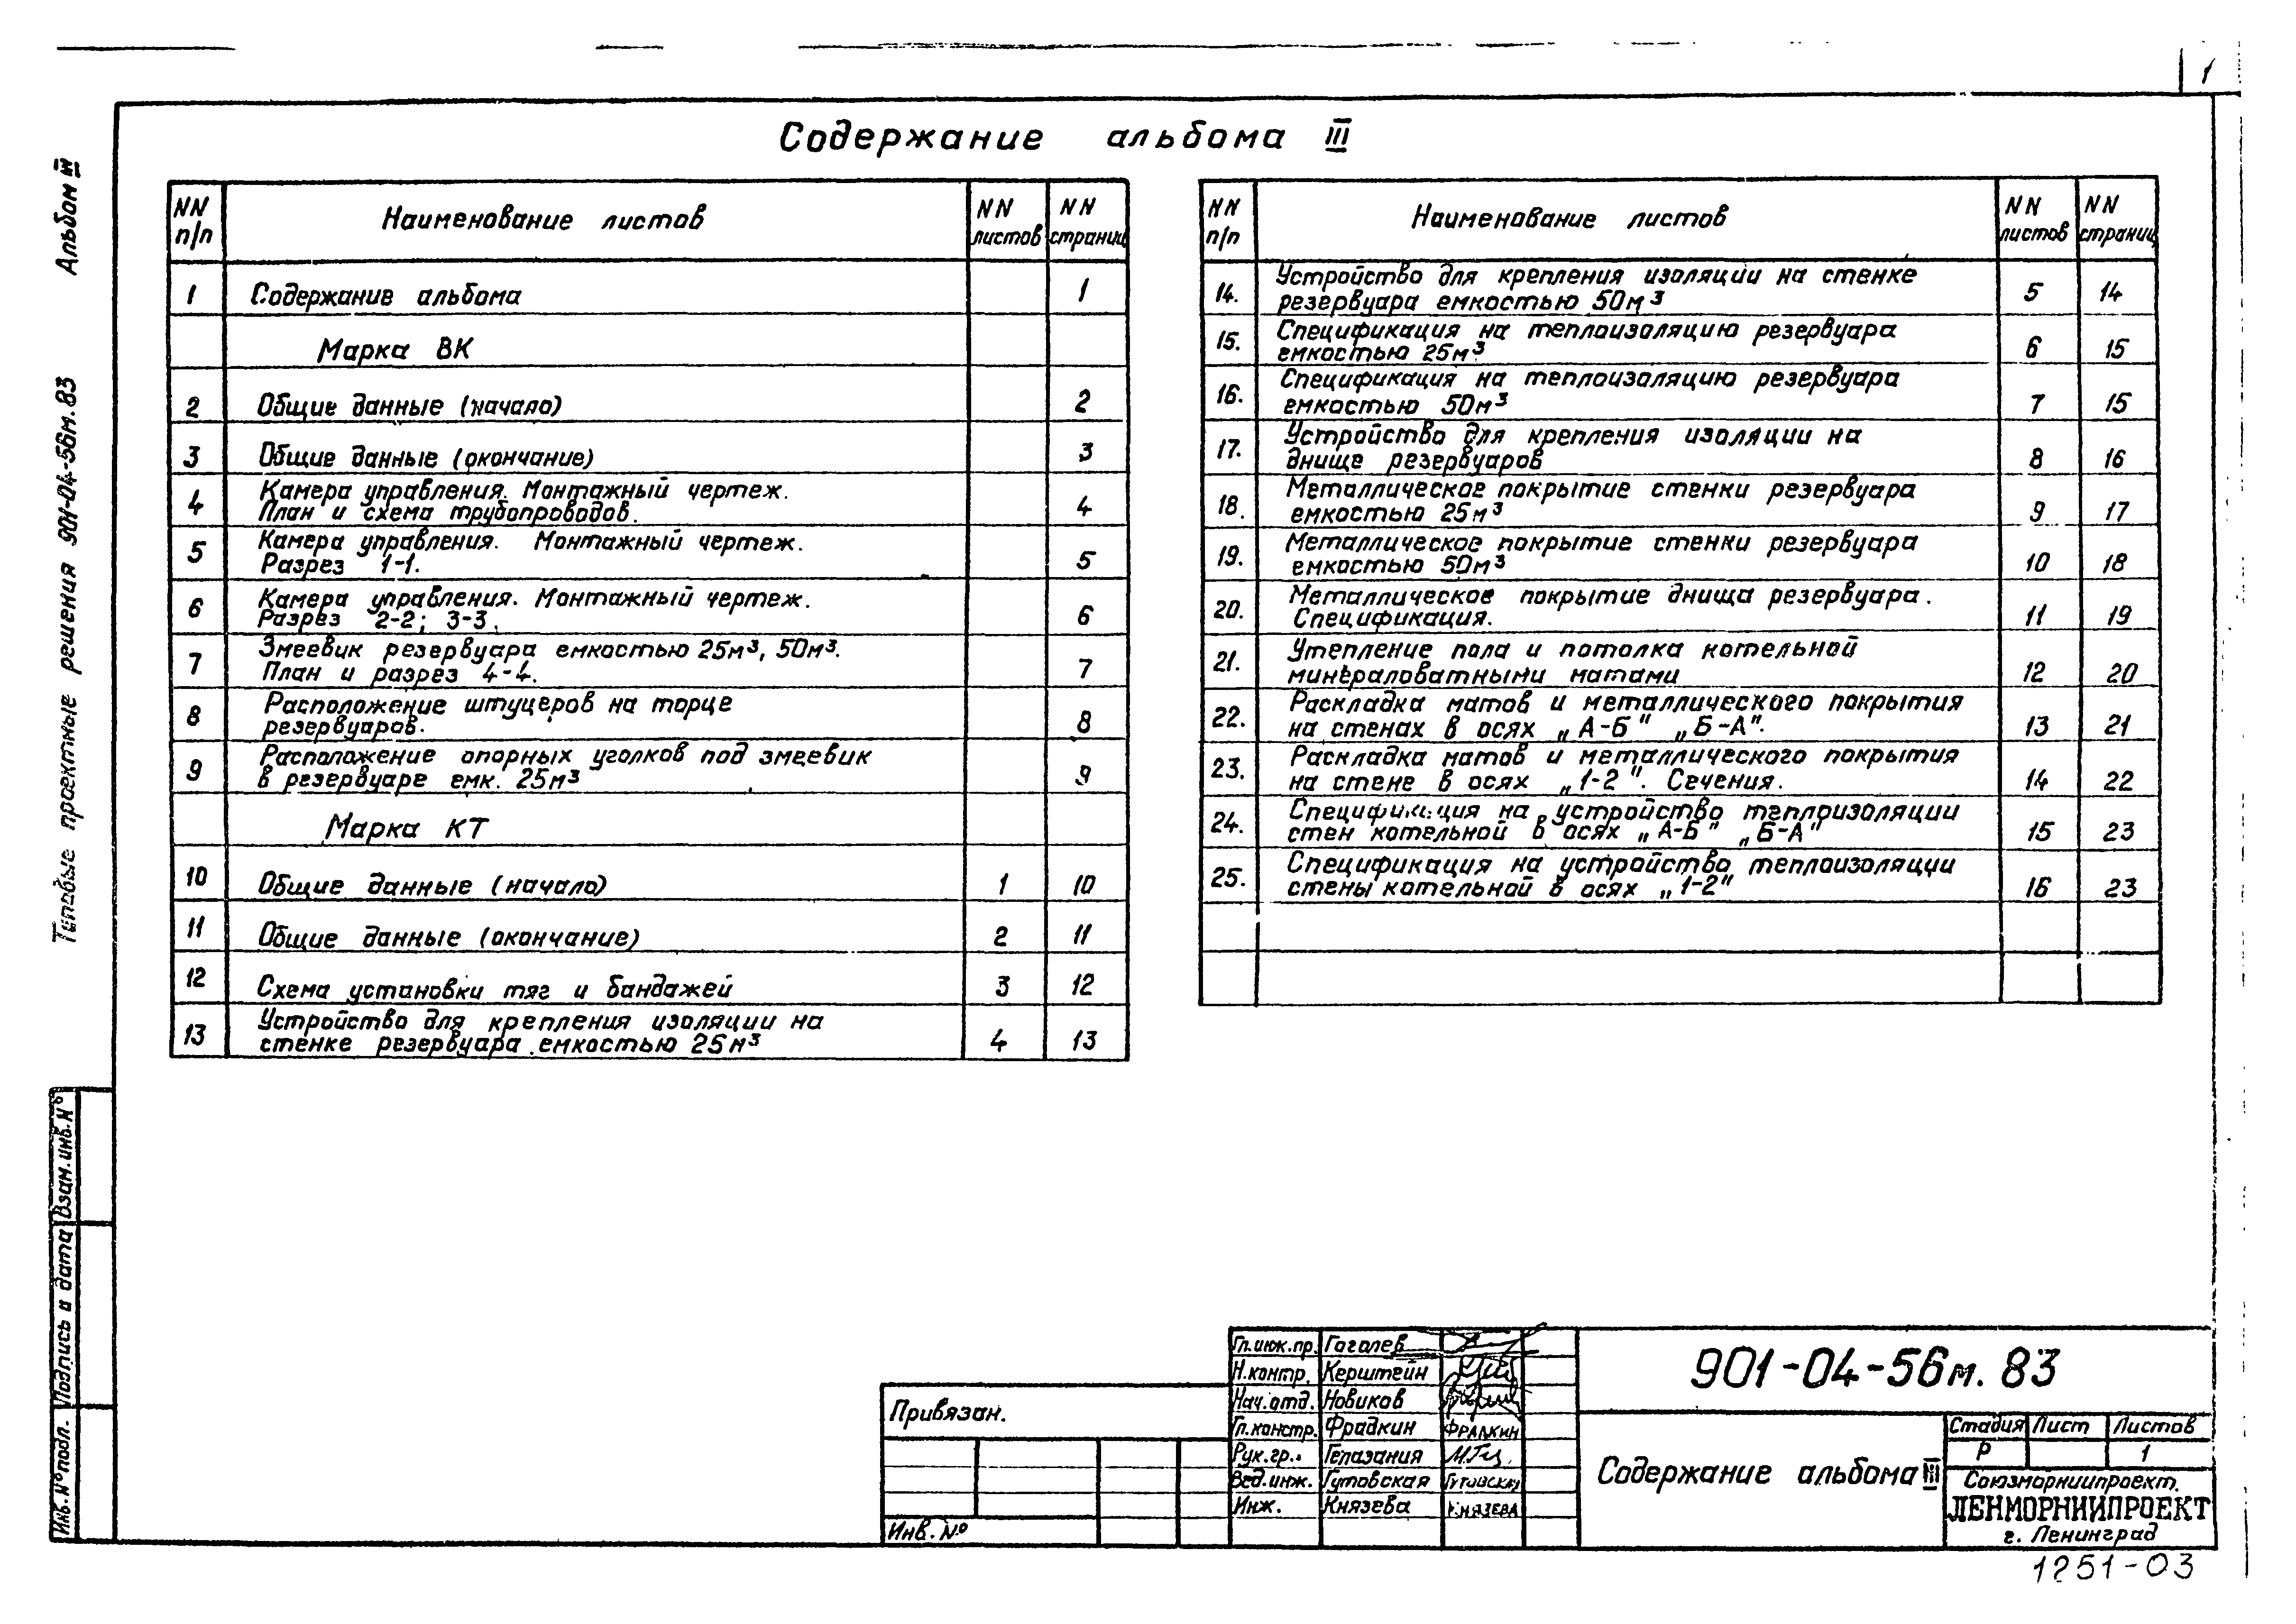 1
Содержание альбома III
Альбом III
Типовые проектные решения 901-04-56м.83
NN п/п
Наименование листов
NN листов
NN страниц
1 Содержание альбома 1
Марка ВК
2 Общие данные (начало) 2
3 Общие данные (окончание) 3
4 Камера управления. Монтажный чертеж.
План и схема трубопроводов. 4
5 Камера управления. Монтажный чертеж.
Разрез 1-1. 5
6 Камера управления. Монтажный чертеж.
Разрез 2-2; 3-3. 6
7 Змеевик резервуара емкостью 25м³, 50м³.
План и разрез 4-4. 7
8 Расположение штуцеров на торце
резервуаров. 8
9 Расположение опорных уголков под змеевик
в резервуаре емк. 25м³ 9
Марка КТ
10 Общие данные (начало) 1 10
11 Общие данные (окончание) 2 11
12 Схема установки тяг и бандажей 3 12
13 Устройство для крепления изоляции на
стенке резервуара емкостью 25м³ 4 13
NN п/п
Наименование листов
NN листов
NN страниц
14. Устройство для крепления изоляции на стенке
резервуара емкостью 50м³ 5 14
15. Спецификация на теплоизоляцию резервуара
емкостью 25м³ 6 15
16. Спецификация на теплоизоляцию резервуара
емкостью 50м³ 7 15
17. Устройство для крепления изоляции на
днище резервуаров 8 16
18. Металлическое покрытие стенки резервуара
емкостью 25м³ 9 17
19. Металлическое покрытие стенки резервуара
емкостью 50м³ 10 18
20. Металлическое покрытие днища резервуара.
Спецификация. 11 19
21. Утепление пола и потолка котельной
минераловатными матами 12 20
22. Раскладка матов и металлического покрытия
на стенах в осях „А-Б" „Б-А". 13 21
23. Раскладка матов и металлического покрытия
на стене в осях „1-2". Сечения. 14 22
24. Спецификация на устройство теплоизоляции
стен котельной в осях „А-Б" „Б-А" 15 23
25. Спецификация на устройство теплоизоляции
стены котельной в осях „1-2" 16 23
Взам.инв.N°
Подпись и дата
Инв.N°подл.
Привязан.
Инв.N°
Гл.инж.пр. Гоголев
Н.контр. Керштейн
Нач.отд. Новиков
Гл.констр. Фрадкин Фрадкин
Рук.гр. Гелазания
Вед.инж. Гутовская
Инж. Князева Князева
901-04-56м.83
Содержание альбома III
Стадия Лист Листов
Р 1
Союзморниипроект.
ЛЕНМОРНИИПРОЕКТ
г. Ленинград
1251-03